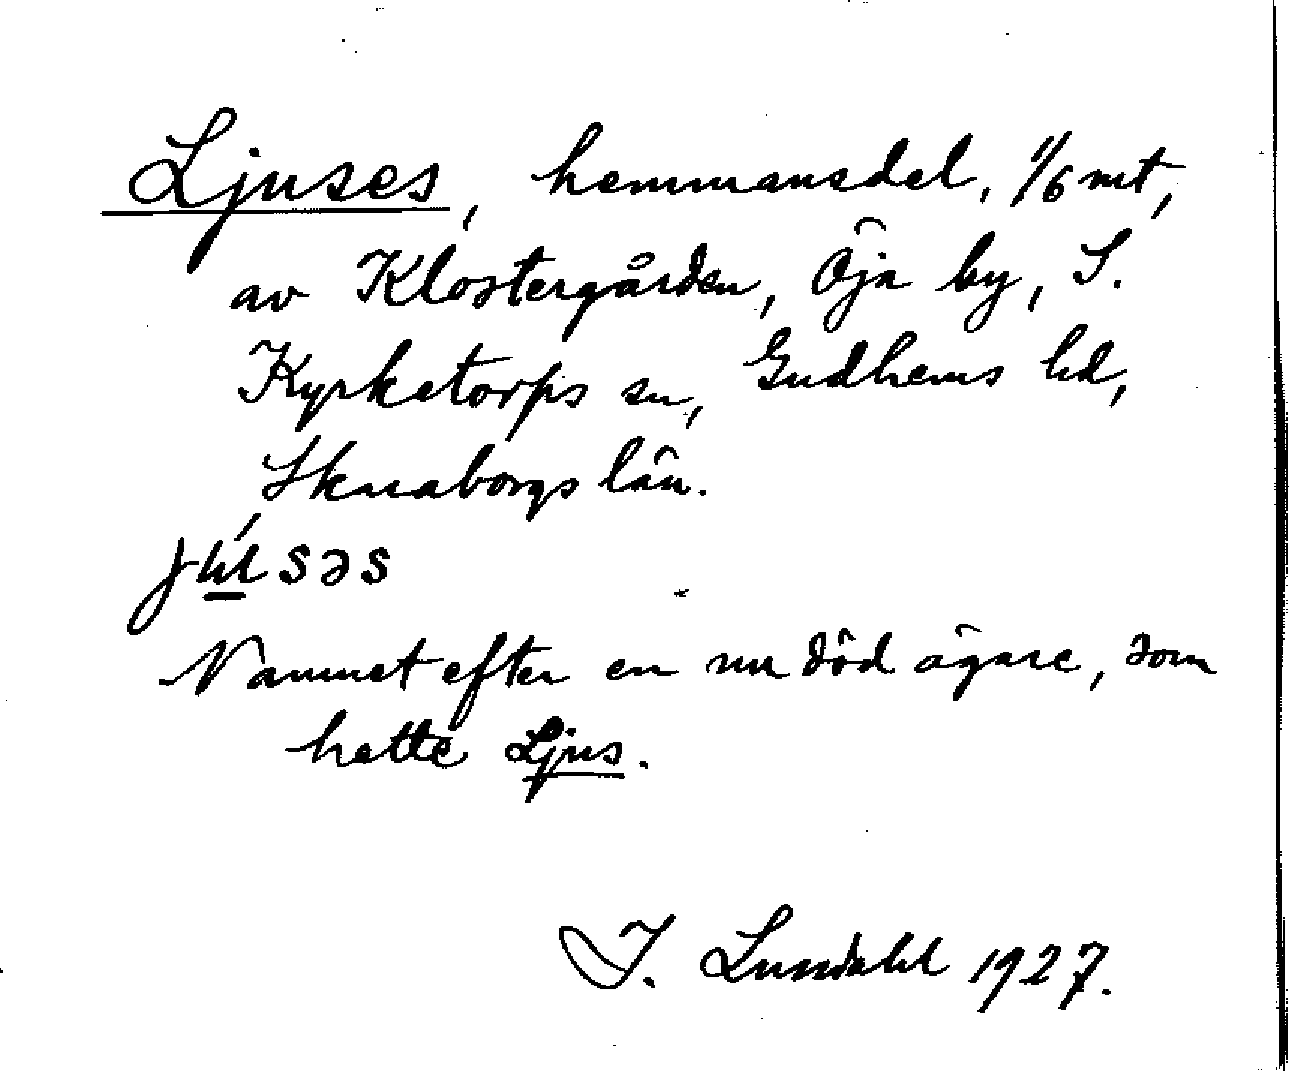 Ljuses, hemmansdel, 1/6 mt,
av Klostergården, Öja by, S.
Kyrketorps sn, Gudhems hd,
Skaraborgs län.
Namnet efter en nu död ägare, som
hette Ljus.
I. Lundahl 1927.